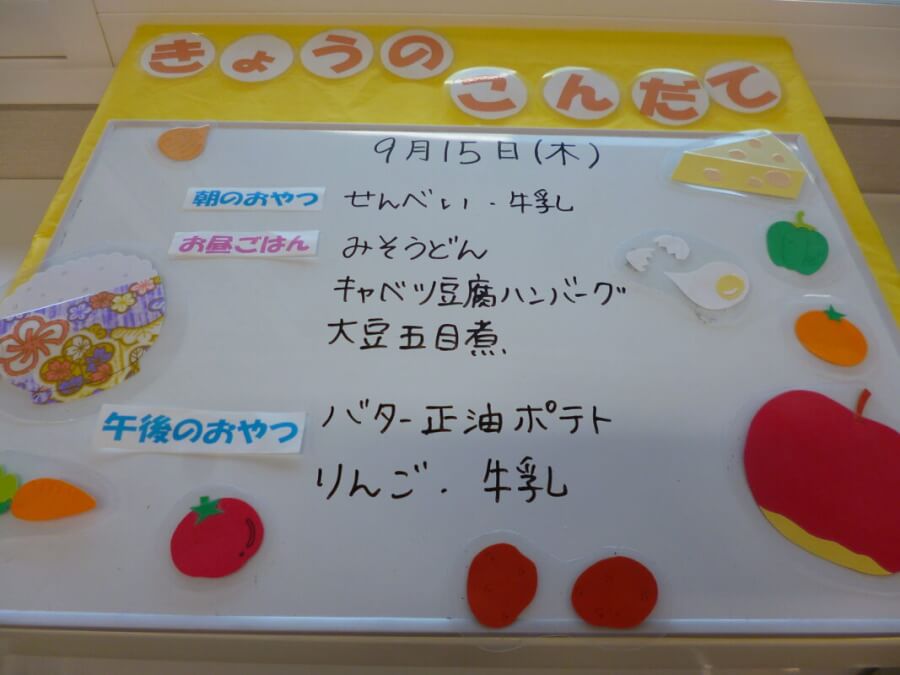 きょうの
こんだて
9月15日(木)
朝のおやつ せんべい・牛乳
お昼ごはん みそうどん
キャベツ豆腐ハンバーグ
大豆五目煮
午後のおやつ バター正油ポテト
りんご・牛乳